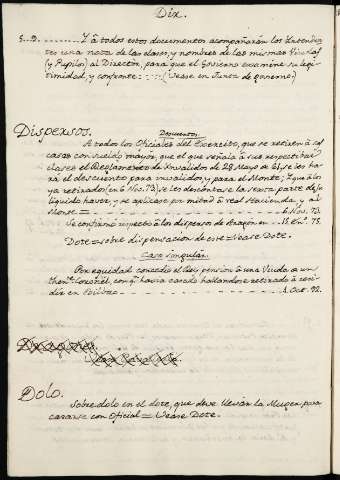 Dix.
Y á todos estos documentos acompañarán los Yntenden-
tes una nota de las clases, y nombres de las mismas Viudas
(y Pupilos) al Director, para que el Govierno examine su legi-
timidad, y confronte (Vease en Junta de govierno)
Dispersos.
Descuentos.
A todos los Oficiales del Exercito, que se retiren á sus
casas con sueldo mayor, que el que señala á sus respectivas
clases el Reglamento de Ynvalidos de 28 Mayo de 61, se les ha-
rá el descuento para invalidos, y para el Monte; Y que á los
ya retirados (en 6 Nov. 73) se les descontase la sexta parte de lo
liquido haver, y se aplicase por mitad á real Hacienda, y al
Monte = 6. Nov. 73.
Se confirmó respecto á los dispersos de Aragón en 75.
Dote = sobre dispensacion de este = Vease Dote.
Caso singular.
Por equidad concedió el Rey pensión á una Viuda de un
Then.te Coronel, con q.n havia casado hallandose retirado á resi-
dir en 1. Oct. 92.
Dragones.
Dolo.
Sobre dolo en el dote, que deve llevar la Muger para
casarse con Oficial = Vease Dote.